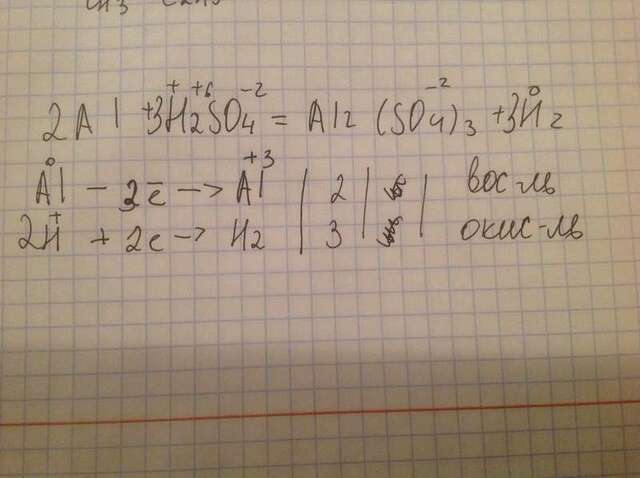 2Al + 3H₂SO₄ = Al₂(SO₄)₃ + 3H₂
+ +6 -2 -2 0
0 +3
Al - 3e̅ → Al | 2 | | вос-ль
+
2H + 2e → H₂ | 3 | | окис-ль